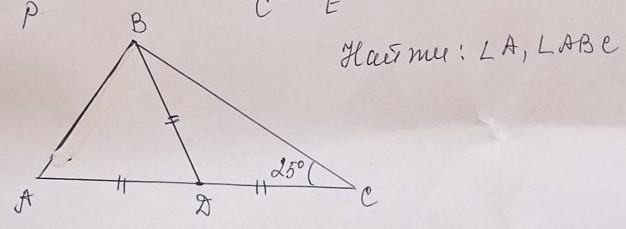 P
C E
B
Найти: ∠A, ∠ABC
25°
A
D
C